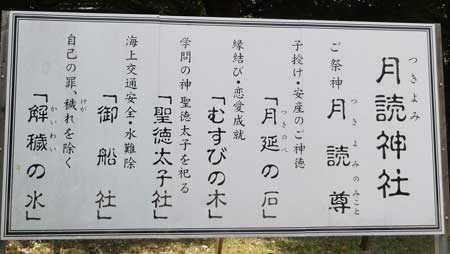 月読神社
つきよみ
ご祭神 月読尊
つきよみのみこと
子授け・安産のご神徳
「月延の石」
つきのべ
縁結び・恋愛成就
「むすびの木」
学問の神 聖徳太子を祀る
「聖徳太子社」
海上交通安全・水難除
「御船社」
自己の罪、穢れを除く
けが
「解穢の水」
かいわい